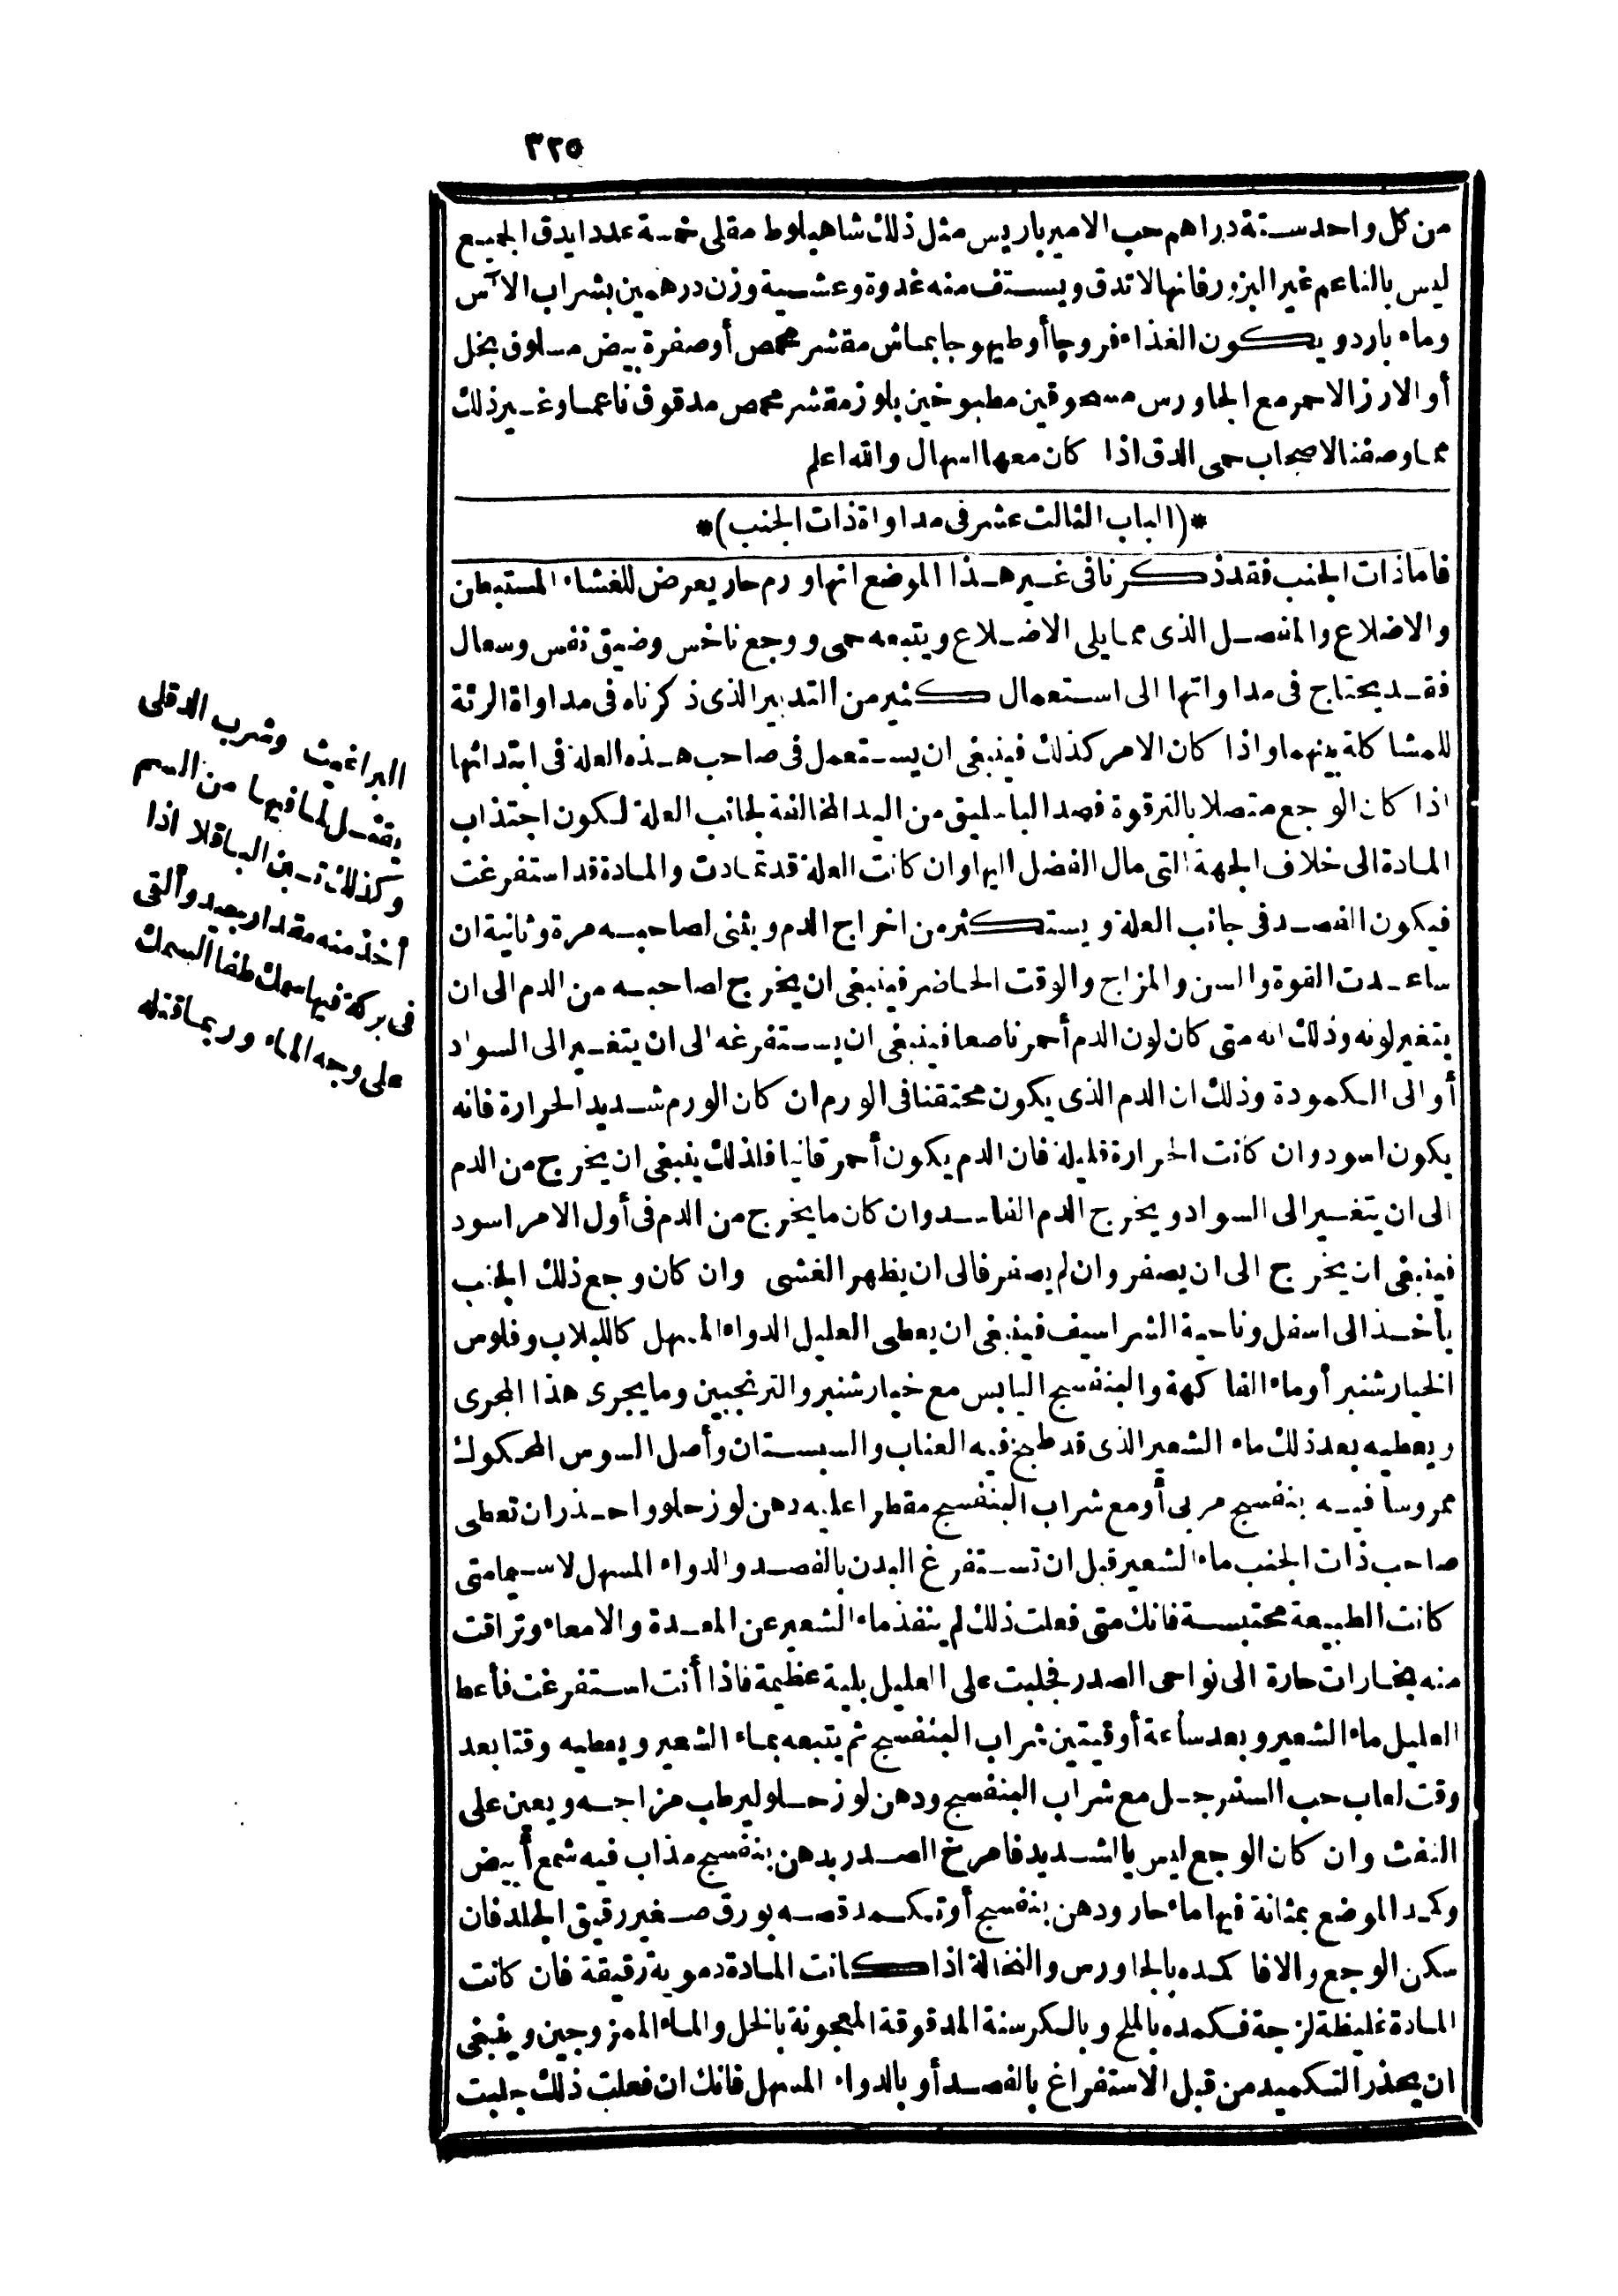 ٣٢٥
من كل واحد ستة دراهم حب الامير باريس مثل ذلك شاهبلوط مقلى خمسة عددا يدق الجميع
ليس بالناعم غير البزور فانها لا تدق ويستف منه غدوة وعشية وزن درهمين بشراب الآس
وماء بارد ويكون الغذاء فروجا أو طيهوجا بماش مقشر محمص أو صفرة بيض مسلوق بخل
أو الارز الاحمر مع الجاورس مسحوقين مطبوخين بلوز مقشر محمص مدقوق ناعما وغير ذلك
مما وصفنا لاصحاب حمى الدق اذا كان معها اسهال والله اعلم
*(الباب الثالث عشر فى مداواة ذات الجنب)*
فاما ذات الجنب فقد ذكرنا فى غير هذا الموضع انها ورم حار يعرض للغشاء المستبطن
والاضلاع والمتصل الذى مما يلى الاضلاع ويتبعه حمى ووجع ناخس وضيق نفس وسعال
فقد يحتاج فى مداواتها الى استعمال كثير من التدبير الذى ذكرناه فى مداواة الرئة
للمشاكلة بينهما واذا كان الامر كذلك فينبغى ان يستعمل فى صاحب هذه العلة فى ابتدائها
اذا كان الوجع متصلا بالترقوة فصد الباسليق من اليد المخالفة لجانب العلة لكون اجتذاب
المادة الى خلاف الجهة التى مال الفضل اليها وان كانت العلة قد تمادت والمادة قد استفرغت
فيكون الفصد فى جانب العلة ويستكثر من اخراج الدم ويثنى لصاحبه مرة وثانية ان
ساعدت القوة والسن والمزاج والوقت الحاضر فينبغى ان يخرج لصاحبه من الدم الى ان
يتغير لونه وذلك انه متى كان لون الدم أحمر ناصعا فينبغى ان يستفرغه الى ان يتغير الى السواد
أو الى الكمودة وذلك ان الدم الذى يكون محتقنا فى الورم ان كان الورم شديد الحرارة فانه
يكون اسود وان كانت الحرارة قليلة فان الدم يكون أحمر قانيا فلذلك ينبغى ان يخرج من الدم
الى ان يتغير الى السواد ويخرج الدم الفاسد وان كان ما يخرج من الدم فى أول الامر اسود
فينبغى ان يخرج الى ان يصفر وان لم يصفر فالى ان يظهر الغشى وان كان وجع ذلك الجنب
يأخذ الى اسفل وناحية الشراسيف فينبغى ان يعطى العليل الدواء المسهل كاللبلاب وفلوس
الخيار شنبر أو ماء الفاكهة والبنفسج اليابس مع خيار شنبر والترنجبين وما يجرى هذا المجرى
ويعطيه بعد ذلك ماء الشعير الذى قد طبخ فيه العناب والسبستان وأصل السوس المحكوك
ممروسا فيه بنفسج مربى أو مع شراب البنفسج مقطرا عليه دهن لوز حلو واحذر ان تعطى
صاحب ذات الجنب ماء الشعير قبل ان تستفرغ البدن بالفصد والدواء المسهل لا سيما متى
كانت الطبيعة محتبسة فانك متى فعلت ذلك لم ينفذ ماء الشعير عن المعدة والامعاء وتراقت
منه بخارات حارة الى نواحى الصدر فجلبت على العليل بلية عظيمة فاذا أنت استفرغت فأعط
العليل ماء الشعير وبعد ساعة أوقيتين شراب البنفسج ثم يتبعه بماء الشعير ويعطيه وقتا بعد
وقت لعاب حب السفرجل مع شراب البنفسج ودهن لوز حلو ليرطب مزاجه ويعين على
النفث وان كان الوجع ليس بالشديد فامرخ الصدر بدهن بنفسج مذاب فيه شمع أبيض
وكمد الموضع بمثانة فيها ماء حار ودهن بنفسج أو تكمد قصه بورق صغير رقيق الجلد فان
سكن الوجع والا فا كمده بالجاورس والنخالة اذا كانت المادة دموية رقيقة فان كانت
المادة غليظة لزجة فكمده بالملح وبالكرسنة المدقوقة المعجونة بالخل والماء الممزوجين وينبغى
ان يحذر التكميد من قبل الاستفراغ بالفصد أو بالدواء المسهل فانك ان فعلت ذلك جلبت
البراغيث وشرب الدقلى
يقتل لما فيها من السم
وكذلك تبن الباقلا اذا
أخذ منه مقدار جيد وألقى
فى بركة فيها سمك طفا السمك
على وجه الماء وربما قتله